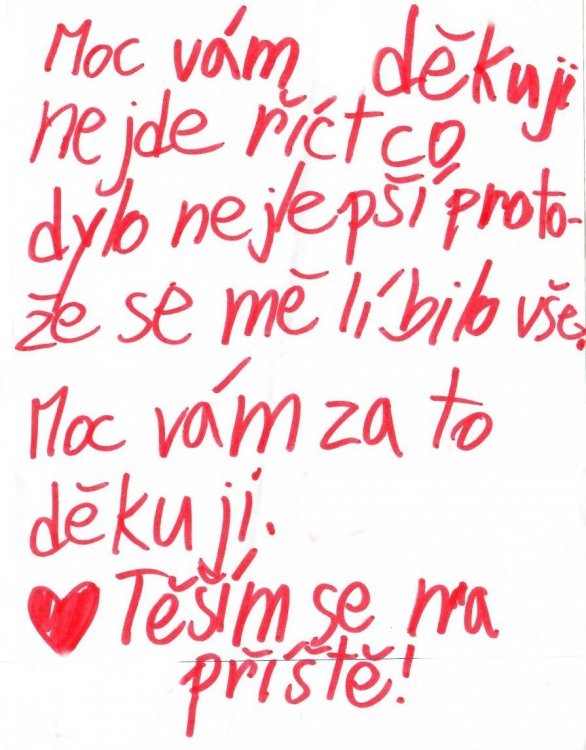 Moc vám děkuji
nejde říct co
dylo nejlepší proto-
že se mě líbilo vše.
Moc vám za to
děkuji.
Těším se na
příště!